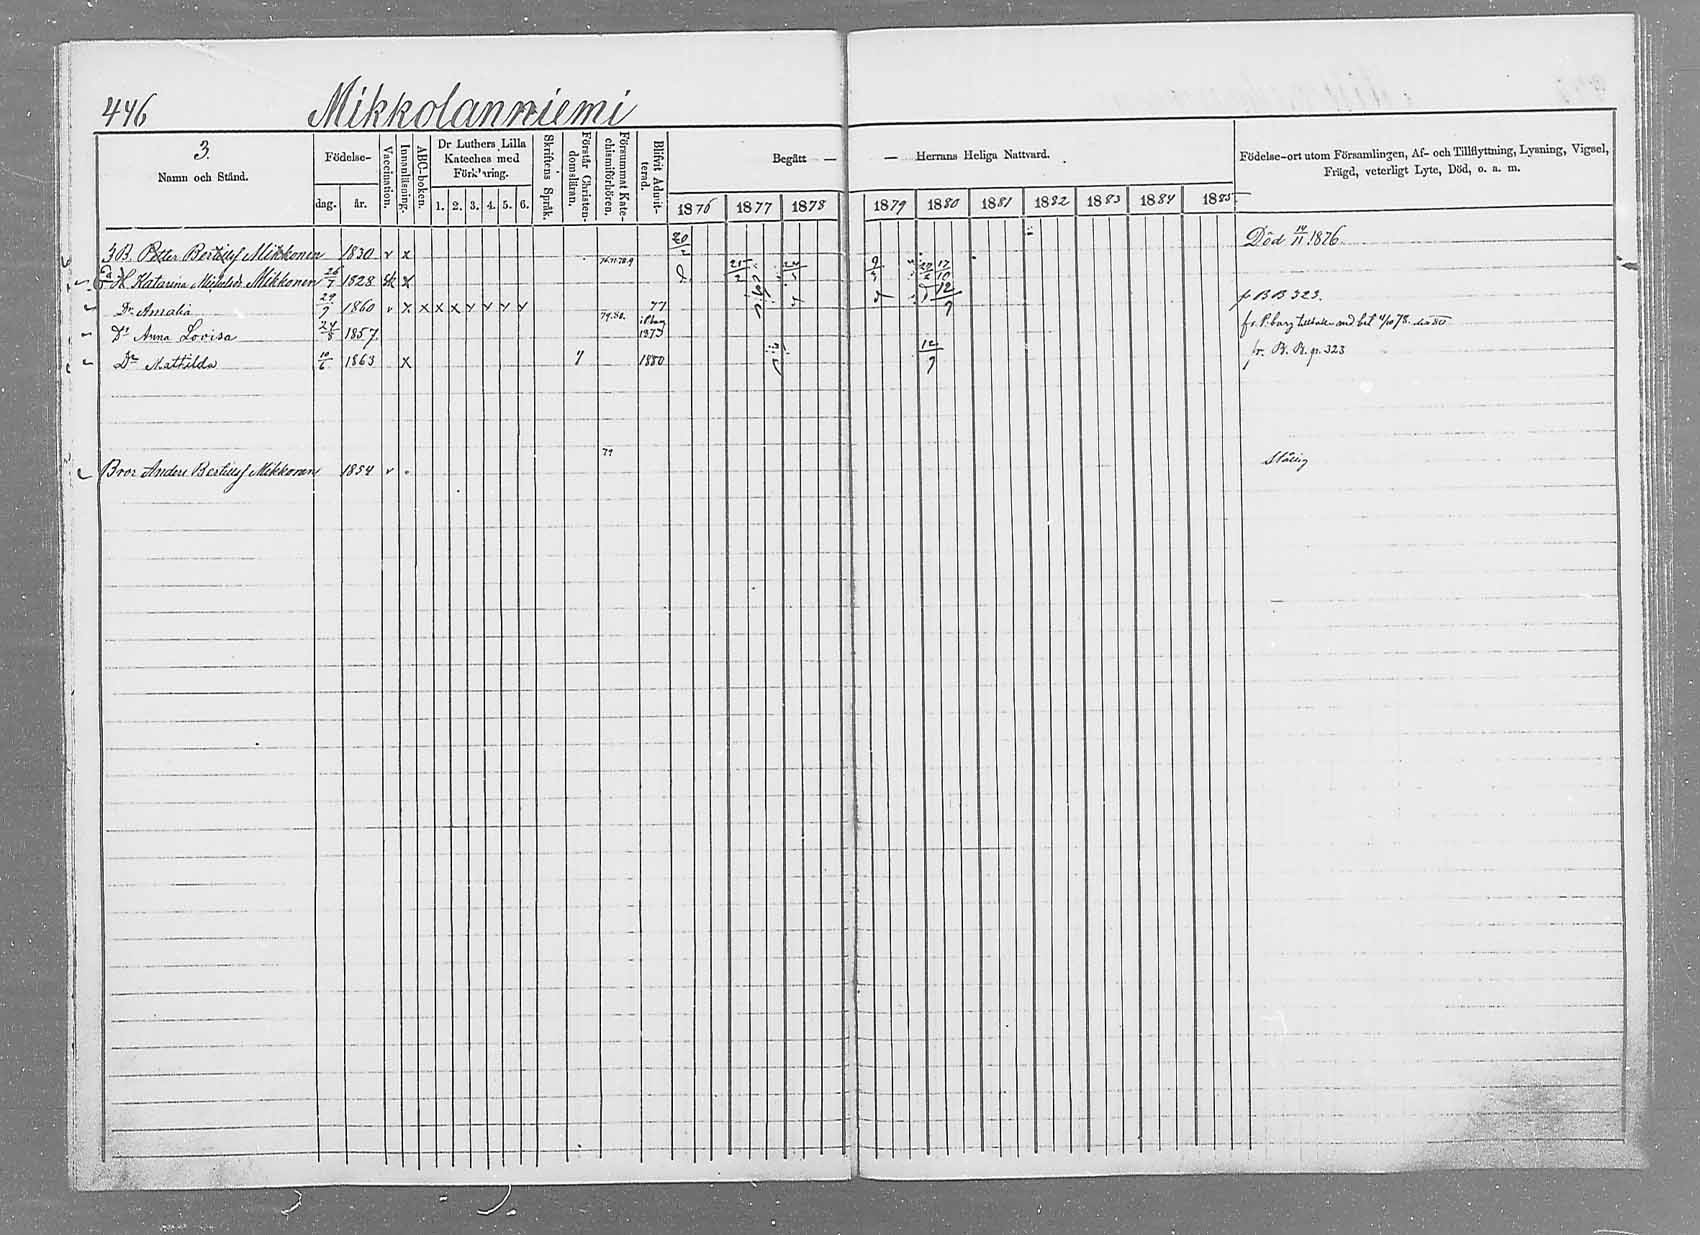 446 Mikkolanniemi
3.
Namn och Stånd.
Födelse-
dag. år.
Vaccination.
Innanläsning.
ABC-boken.
Dr Luthers Lilla
Kateches med
Förklaring.
1. 2. 3. 4. 5. 6.
Skriftens Språk.
Förstår Christen-
domsläran.
Försummat Kate-
chismiförhören.
Blifvit Admit-
terad.
Begått — — Herrans Heliga Nattvard.
1876 1877 1878 1879 1880 1881 1882 1883 1884 1885
Födelse-ort utom Församlingen, Af- och Tillflyttning, Lysning, Vigsel,
Frägd, veterligt Lyte, Död, o. a. m.
3 B. Petter Bertilsf Mikkonen 1830 v x 20/2 Död 14/11 1876
H. Katarina Michelsdr Mikkonen 26/7 1828 x
Dr Amalia 29/9 1860 v x x x x y y y y 77 f BB 323.
79.80.
Dr Anna Lovisa 24/8 1857 1875
Dr Mathilda 10/6 1863 x 7 1880 12/9 fr. B. B. p. 323
79
Bror Anders Bertilsf Mikkonen 1854 v